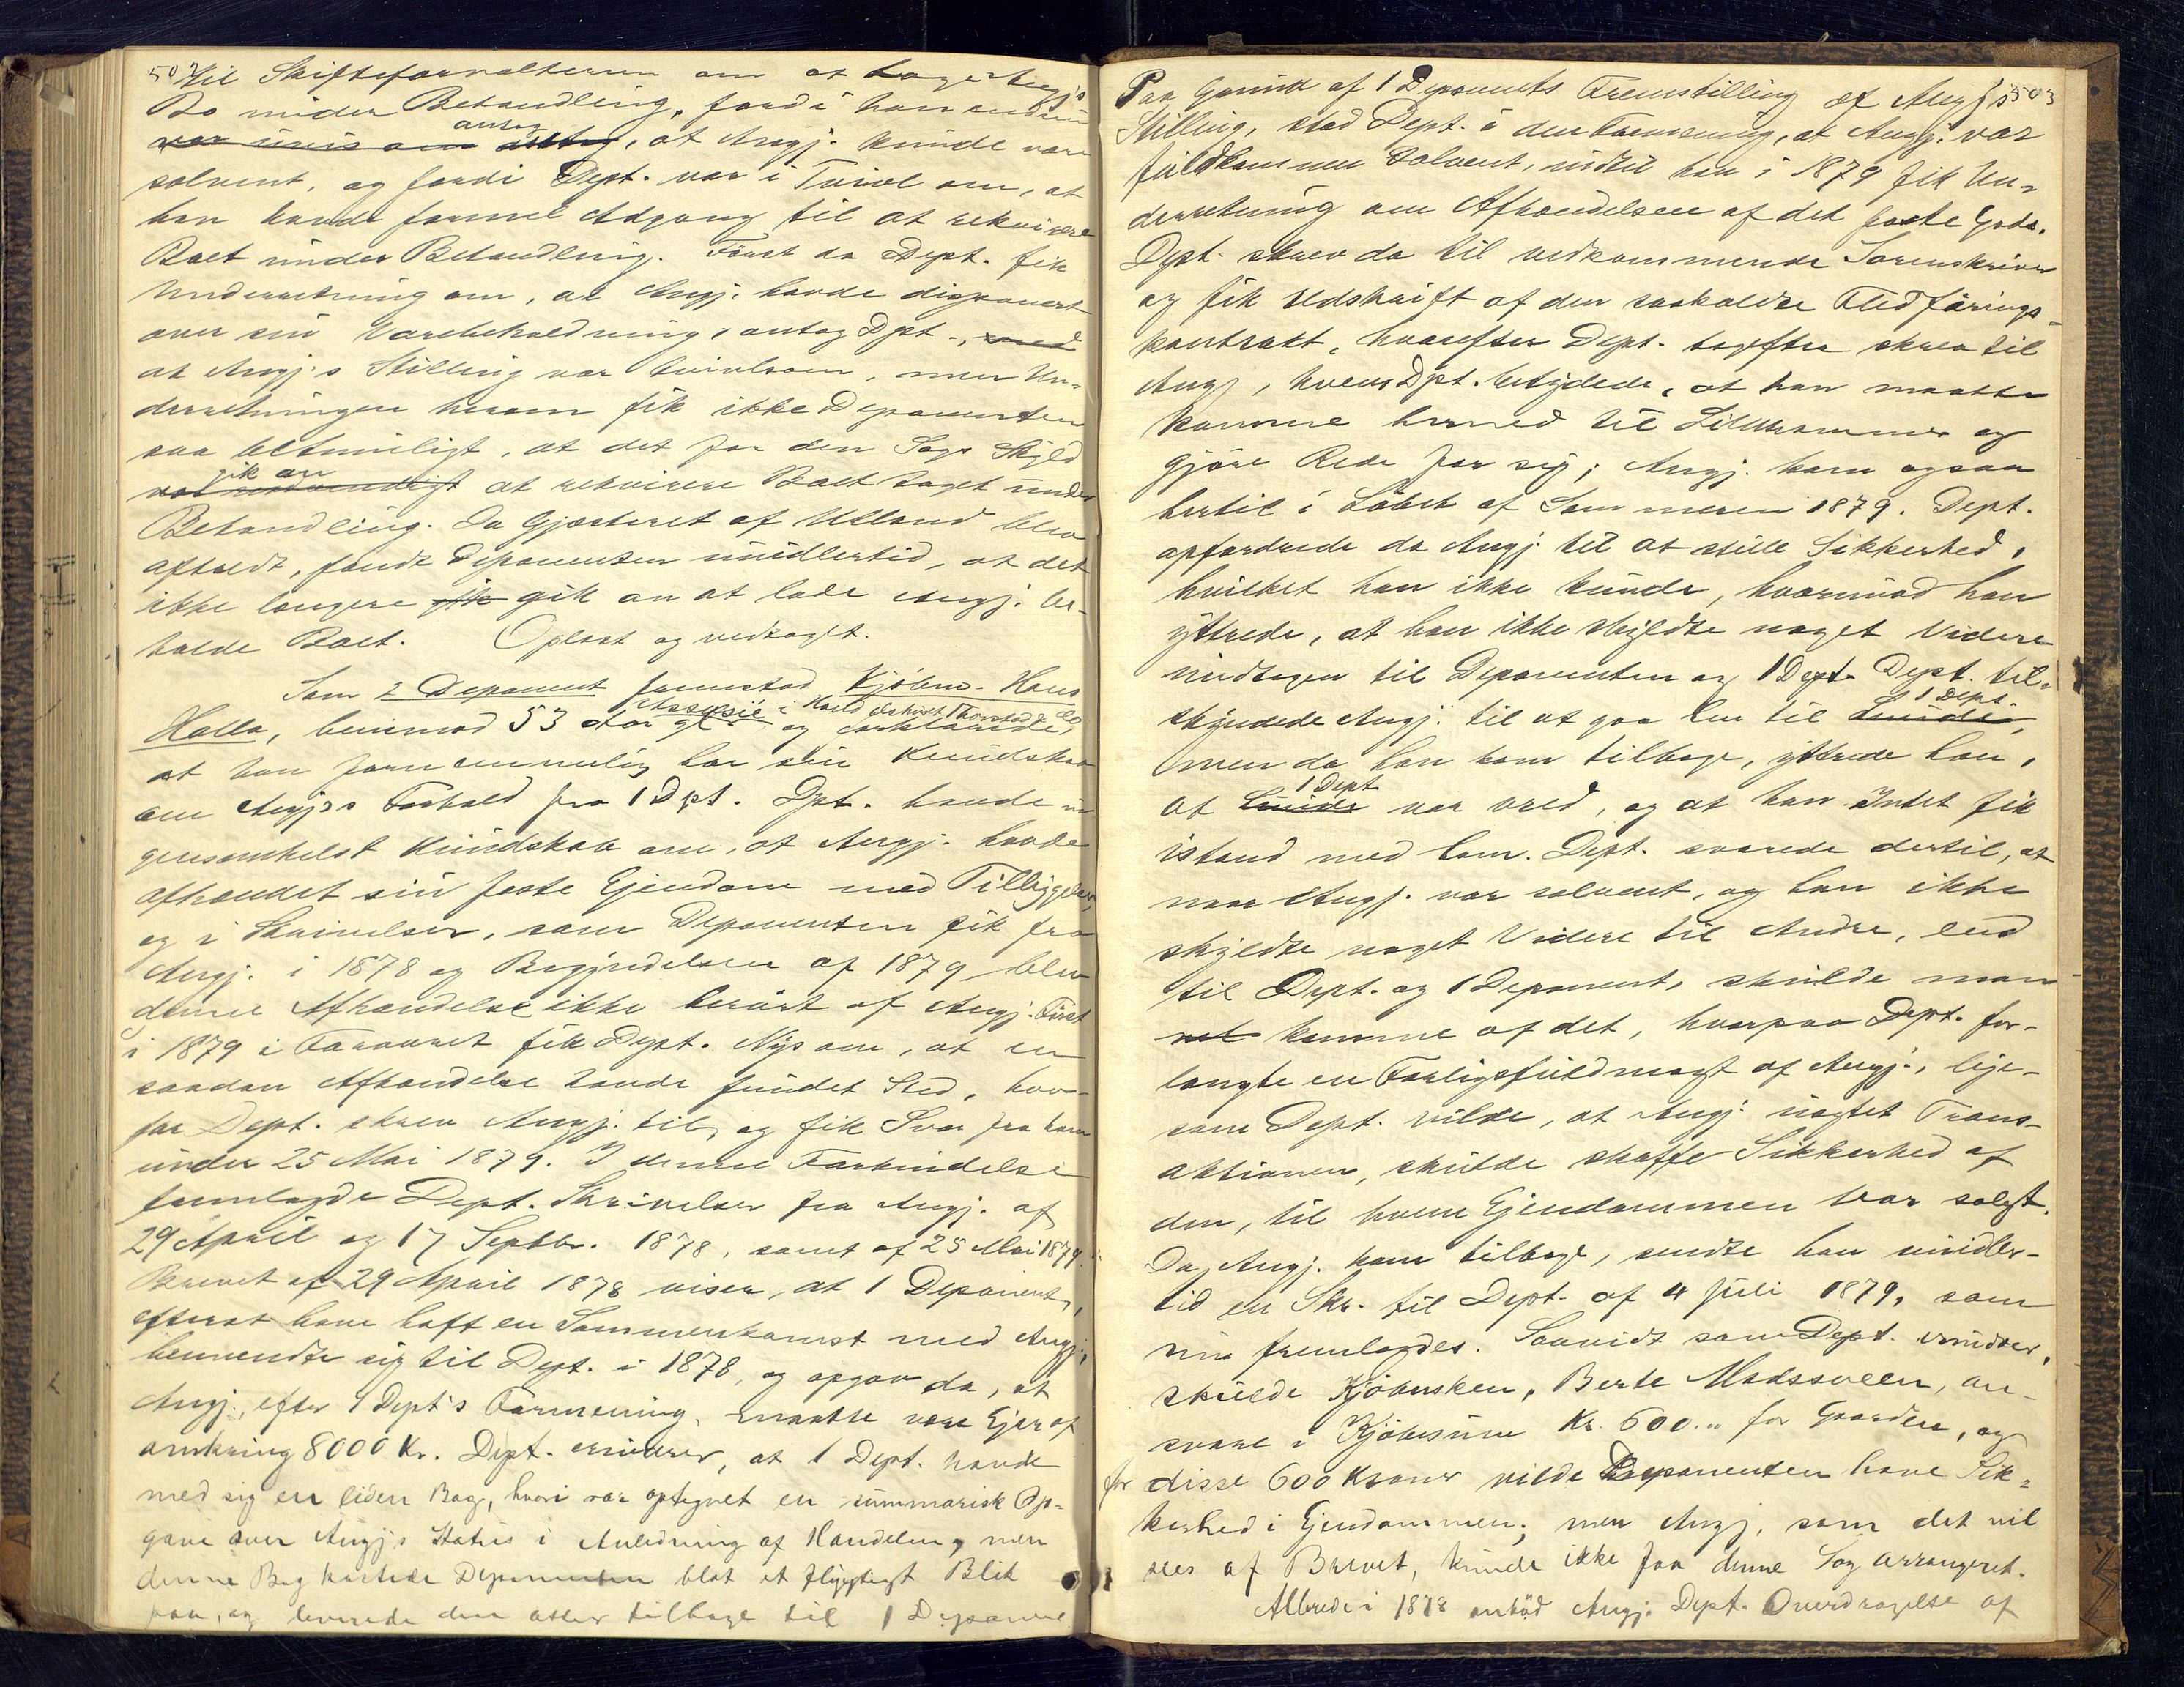 502
til Skifteforvalteren om at tage Angj's
Bo under Behandling, fordi han endnu
var unis om antog, at Angj. kunde være
solvent, og fordi Dept. var i Tvivl om, at
han havde formel Adgang til at rekvirere
Boet under Behandling. Først da Dept. fik
Underretning om, at Angj. havde disponeret
over sin Varebeholdning, antog Dpt.,
at Angj.s Stilling var tvivlsom, men Un-
derretningen herom fik ikke Deponenten
saa betimeligt, at det for den Sags Skyld
gik an
var nødvendigt at rekvirere Boet taget under
Behandling. Da Gjæsteret af Ulland blev
afholdt, fandt Deponenten imidlertid, at det
ikke længere gik an at lade Angj. be-
holde Boet. Oplæst og vedtaget.
Som 2 Deponent fremstod Kjøbm. Hans
Halla, henimod 53 Aar gl. og forklarede,
at han fornemmelig har sin Kundskab
om Angj.s Forhold fra 1 Dpt. Dpt. havde in-
gensomhelst Kundskab om, at Angj. havde
afhændet sin faste Ejendom med Tilliggelser,
og i Skrivelser, som Deponenten fik fra
Angj. i 1878 og Begyndelsen af 1879 blev
denne Afhændelse ikke berørt af Angj. Først
i 1879 i Foraaret fik Dept. Nys om, at en
saadan Afhændelse havde fundet Sted, hvor-
for Dept. skrev Angj. til, og fik Svar fra ham
under 25 Mai 1879. I denne Forbindelse
fremlagde Dept. Skrivelser fra Angj. af
29 April og 17 Septbr. 1878, samt af 25 Mai 1879.
Brevet af 29 April 1878 viser, at 1 Deponent,
efterat have haft en Sammenkomst med Angj.,
henvendte sig til Dept. i 1878, og opgav da, at
Angj., efter 1 Dept's Formening, maatte være Ejer af
omkring 8000 Kr. Dept. erindrer, at 1 Dept. havde
med sig en liden Bog, hvori var optegnet en summarisk Op-
gave over Angj's Status i Anledning af Handelen, men
denne Bog kastede Deponenten blot et flygtigt Blik
paa, og leverede den atter tilbage til 1 Deponent
503
Paa Grund af 1 Deponents Fremstilling af Angj's
Stilling, stod Dept. i den Formening, at Angj. var
fuldkommen solvent, indtil han i 1879 fik Un-
derretning om Afhændelsen af det faste Gods.
Dept. skrev da til vedkommende Sorenskriver
og fik Udskrift af den saakaldte Fledførings-
kontrakt, hvorefter Dept. derefter skrev til
Angj., hvem Dpt. betydede, at han maatte
komme herned til Lillehammer og
gjøre Rede for sig; Angj. kom ogsaa
hertil i Løbet af Sommeren 1879. Dept.
opfordrede da Angj. til at stille Sikkerhed,
hvilket han ikke kunde, hvorimod han
yttrede, at han ikke skyldte noget Videre
undtagen til Deponenten og 1 Dept. Dept. til-
1 Dept.
skyndede Angj. til at gaa hen til Lunde,
men da han kom tilbage, yttrede han,
1 Dept
at Lunde var vred, og at han Intet fik
istand med ham. Dept. svarede dertil, at
naar Angj. var solvent, og han ikke
skyldte noget Videre til Andre, end
til Dept. og 1 Deponent, skulde man
nok komme af det, hvorpaa Dept. for-
langte en Forligsfuldmagt af Angj., lige-
som Dept. vilde, at Angj. uagtet Trans-
aktionen, skulde skaffe Sikkerhed af
den, til hvem Ejendommen var solgt.
Da Angj. kom tilbage, sendte han imidler-
tid en Skr. til Dept. af 4 Juli 1879, som
nu fremlagdes. Saavidt som Dept. erindrer,
skulde Kjøbersken, Berte Madssveen, an-
svare i Kjøbesum Kr. 600.„ for Gaarden, og
for disse 600 Kroner vilde Deponenten have Sik-
kerhed i Ejendommen; men Angj., som det vil
sees af Brevet, kunde ikke faa denne Sag arrangeret.
Allerede i 1878 anbød Angj. Dept. Overdragelse af